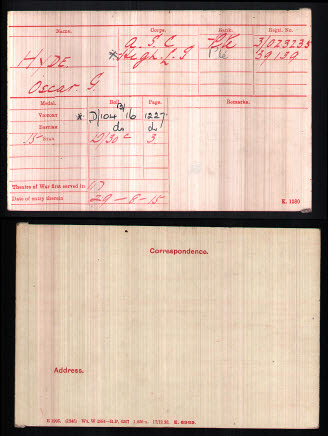 Name. Corps. Rank. Regtl. No.
HYDE A.S.C. Pte S/023235
Oscar G. * High. L. I. Pte 59139
Medal. Roll. Page. Remarks.
VICTORY * D/104 B/16 1227
BRITISH do do
15 STAR D/30 C 3
Theatre of War first served in (1)
Date of entry therein 29-8-15 K. 1380
Correspondence.
Address.